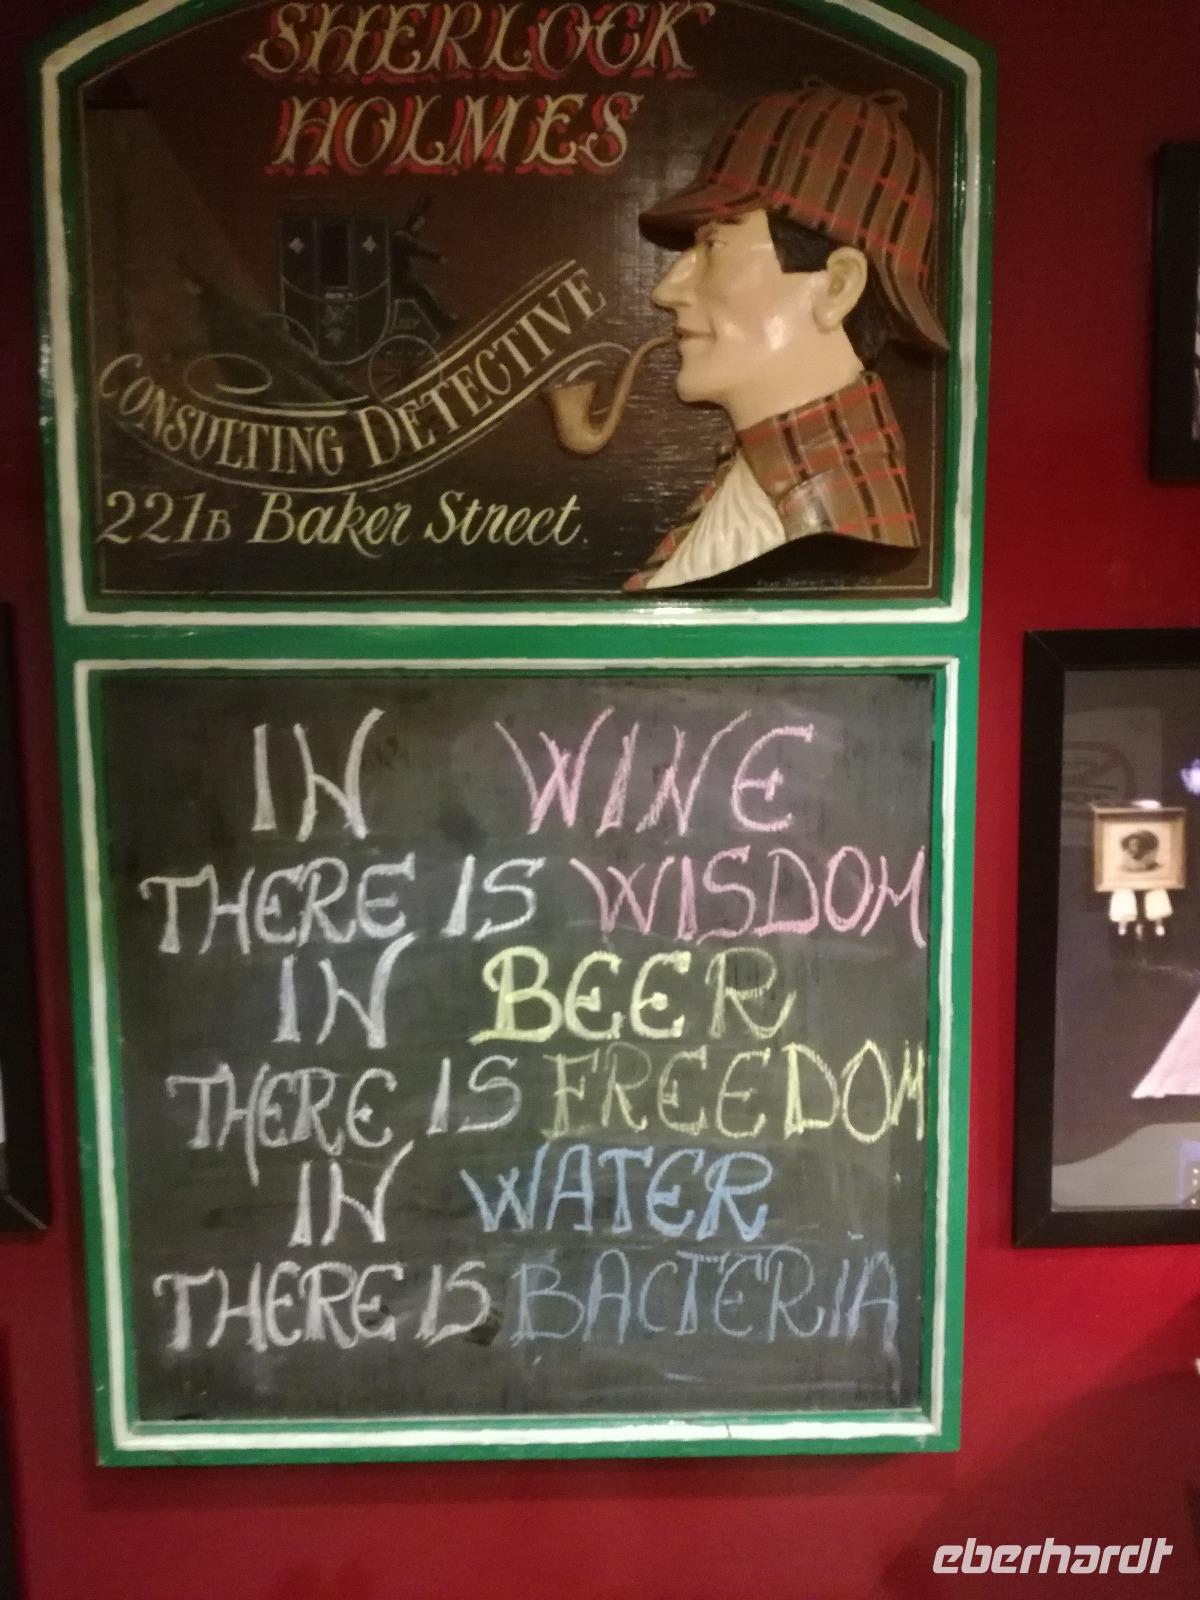 SHERLOCK
HOLMES
CONSULTING DETECTIVE
221B Baker Street.
IN WINE
THERE IS WISDOM
IN BEER
THERE IS FREEDOM
IN WATER
THERE IS BACTERIA
eberhardt